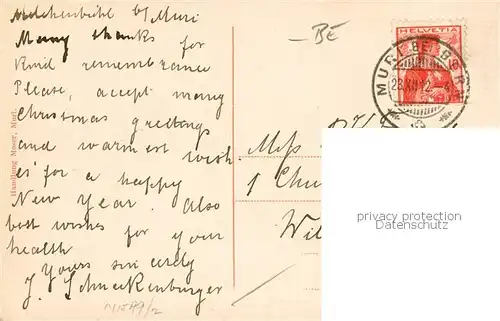 Melchenbühl b/Muri
Many thanks for
kind remembrance
Please, accept many
Christmas greetings
and warmest wish
es for a happy
New Year. Also
best wishes for your
health
Yours sincerely
J. Schneckenburger
BE
HELVETIA
10
MURI (BE. BERN)
23.XII.12
Miss
1 Chu
Wil
Handlung Moser, Muri
privacy protection
Datenschutz